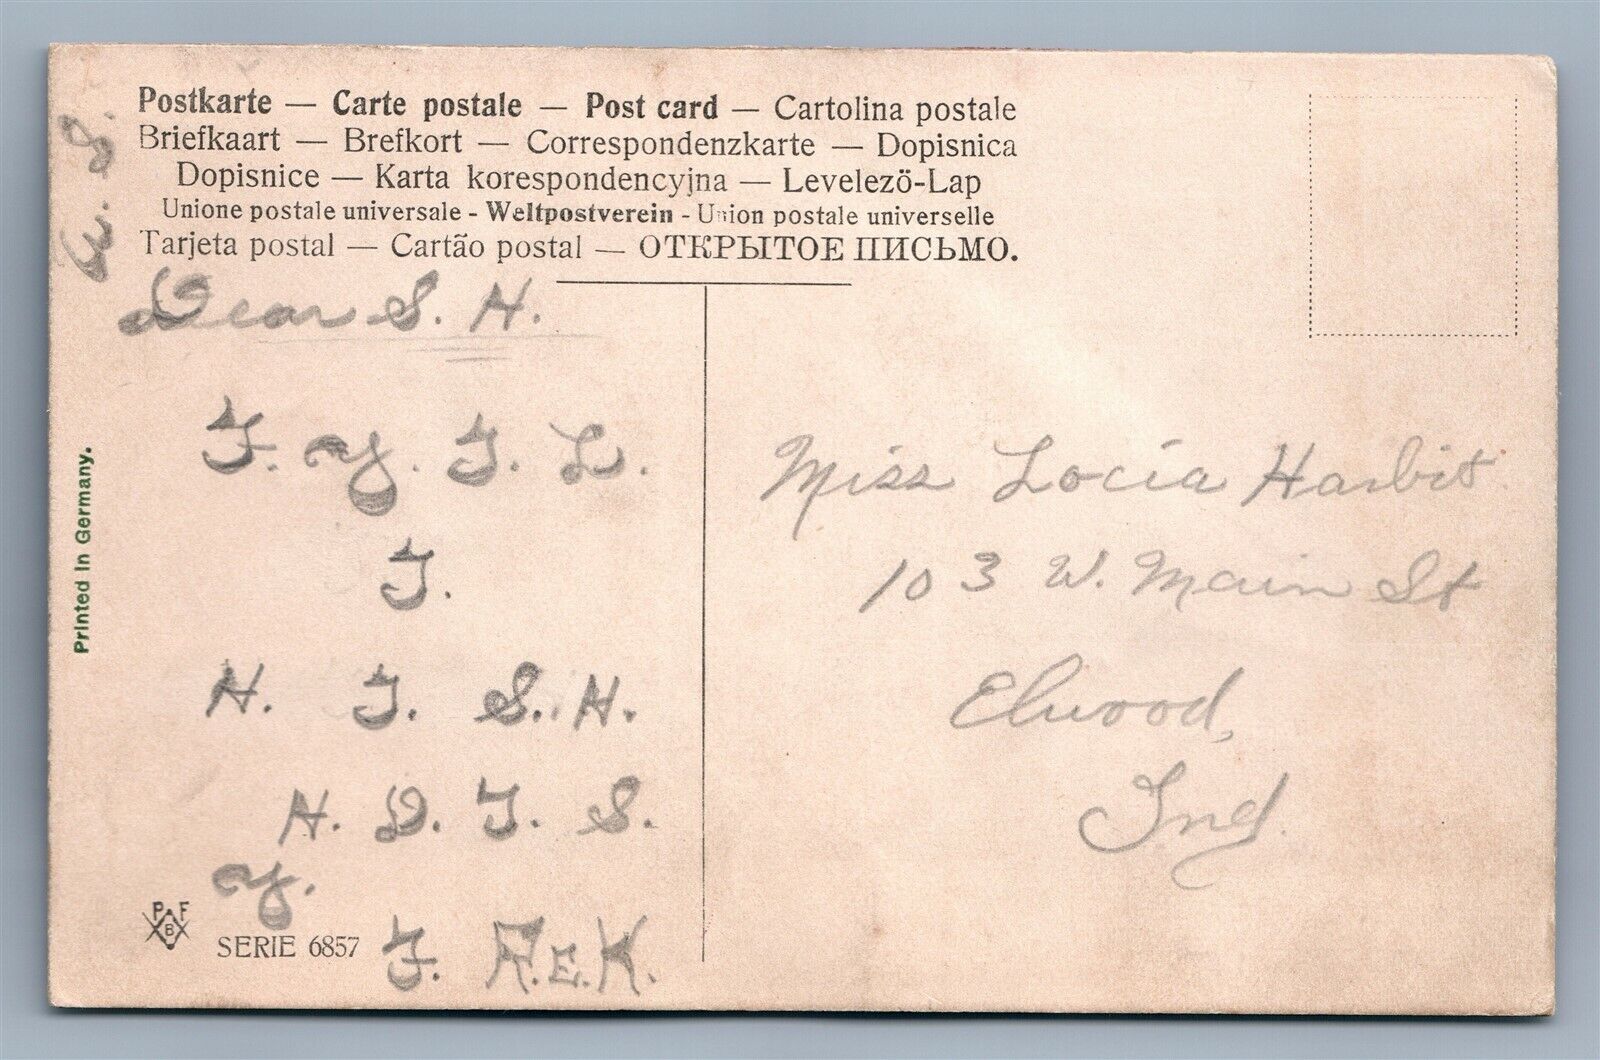 Postkarte — Carte postale — Post card — Cartolina postale
Briefkaart — Brefkort — Correspondenzkarte — Dopisnica
Dopisnice — Karta korespondencyjna — Levelezö-Lap
Unione postale universale - Weltpostverein - Union postale universelle
Tarjeta postal — Cartão postal — ОТКРЫТОЕ ПИСЬМО.
Dear S. H.
F. Y. T. L.
T.
H. T. S. H.
H. D. T. S.
Y.
F. F.E.K.
Printed in Germany.
P F
B
SERIE 6857
Miss Locia Harbit
103 W. Main St
Elwood,
Ind.